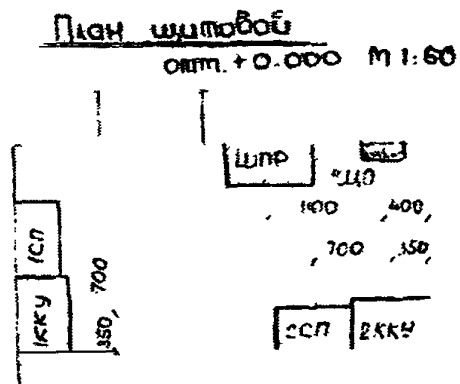 План щитовой
отм. +0.000 М 1:50
ШПР
ЩО
400,
700 350,
1СП
700
1ККУ
350,
2СП 2ККУ